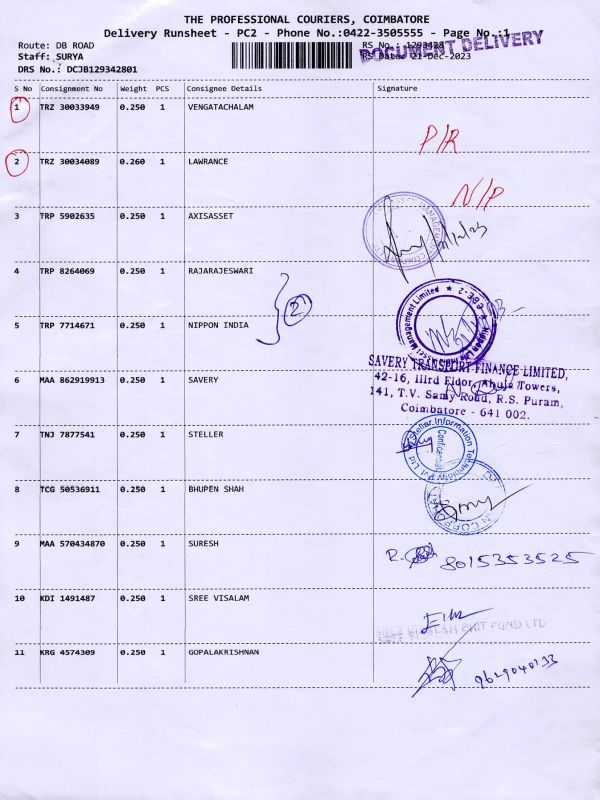 THE PROFESSIONAL COURIERS, COIMBATORE
Delivery Runsheet - PC2 - Phone No.:0422-3505555 - Page No.:1
DOCUMENT DELIVERY
Route: DB ROAD
RS No.: 1293428
Staff: SURYA
RS Date: 21-Dec-2023
DRS No.: DCJB129342801
S No Consignment No Weight PCS Consignee Details Signature
1 TRZ 30033949 0.250 1 VENGATACHALAM
P/R
2 TRZ 30034089 0.260 1 LAWRANCE
N/P
3 TRP 5902635 0.250 1 AXISASSET
4 TRP 8264069 0.250 1 RAJARAJESWARI
2
5 TRP 7714671 0.250 1 NIPPON INDIA
Management Limited
6 MAA 862919913 0.250 1 SAVERY
SAVERY TRANSPORT FINANCE LIMITED,
42-16, IIIrd Floor, Ahuja Towers,
141, T.V. Samy Road, R.S. Puram,
Coimbatore - 641 002.
7 TNJ 7877541 0.250 1 STELLER
Stellar Information Technology Pvt Ltd
8 TCG 50536911 0.250 1 BHUPEN SHAH
9 MAA 570434870 0.250 1 SURESH
8015353525
10 KDI 1491487 0.250 1 SREE VISALAM
SREE VISALAM CHIT FUND LTD
11 KRG 4574309 0.250 1 GOPALAKRISHNAN